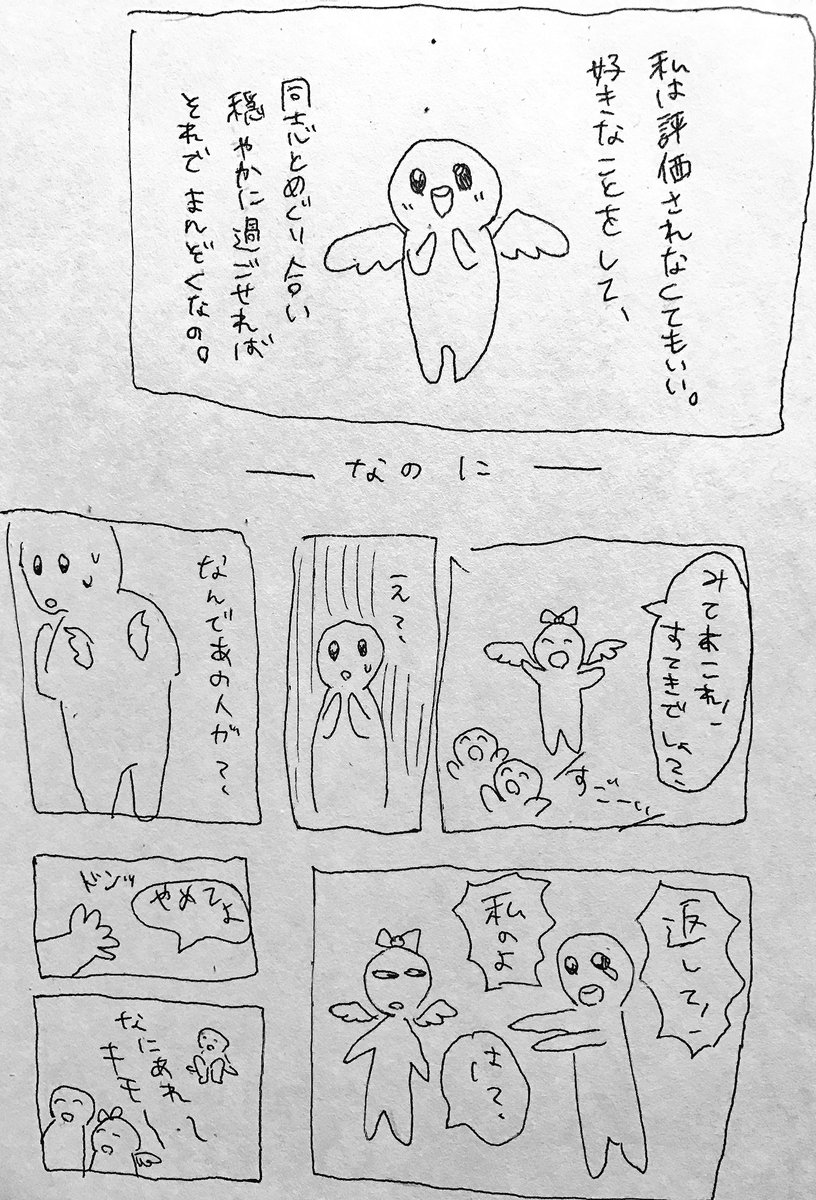 私は評価されなくてもいい。
好きなことをして、
同志とめぐり合い
穏やかに過ごせれば
それで まんぞくなの。
なのに
みてみこれ!
すてきでしょ?
すごーい
え?
なんであの人が?
返して!
私のよ
は?
ドンッ
やめてよ
なにあれ
キモー